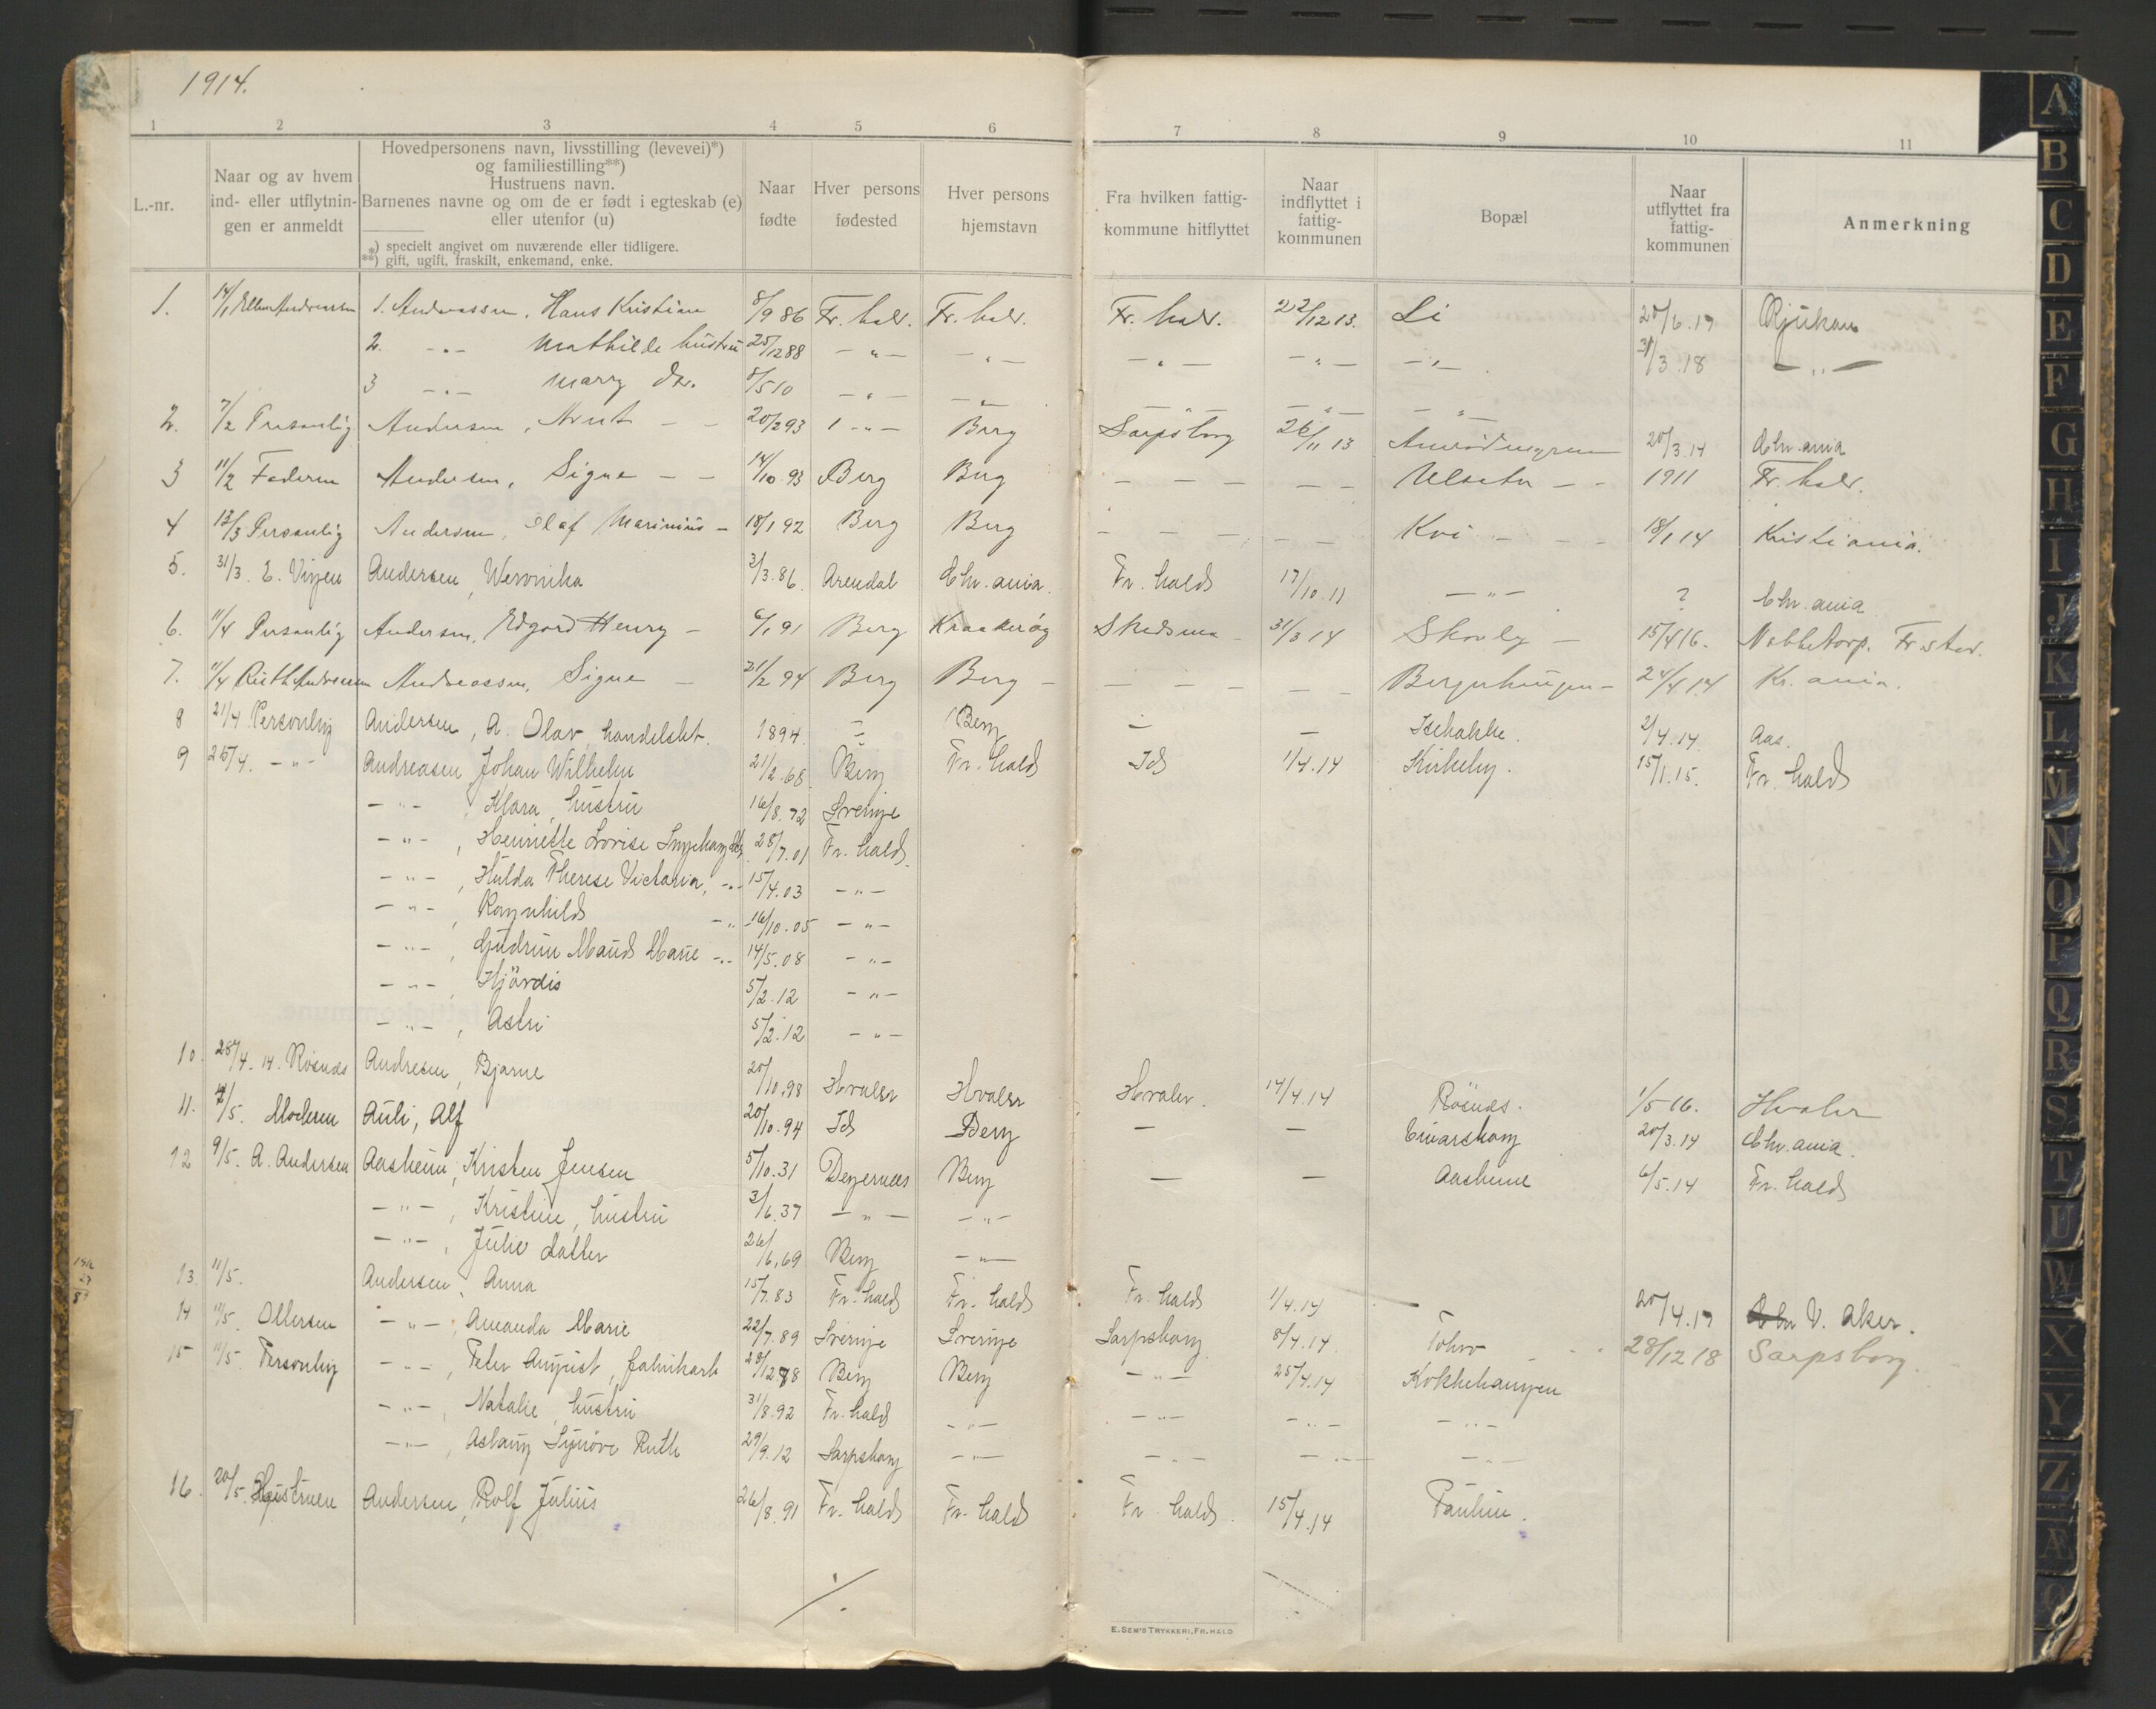 1914.
1 2 3 4 5 6 7 8 9 10 11
L.-nr.
Naar og av hvem
ind- eller utflytnin-
gen er anmeldt
Hovedpersonens navn, livsstilling (levevei)*)
og familiestilling**)
Hustruens navn.
Barnenes navne og om de er født i egteskab (e)
eller utenfor (u)
*) specielt angivet om nuværende eller tidligere.
**) gift, ugift, fraskilt, enkemand, enke.
Naar
fødte
Hver persons
fødested
Hver persons
hjemstavn
Fra hvilken fattig-
kommune hitflyttet
Naar
indflyttet i
fattig-
kommunen
Bopæl
Naar
utflyttet fra
fattig-
kommunen
Anmerkning
1. 14/1 Ellen Andreassen 1. Andreassen, Hans Kristian 8/9 86 Fr. hald. Fr. hald. Fr. hald. 22/12 13. Li 20/6.19 Rjukan
2. -"- Mathilde hustru 25/12 88 -"- -"- -"- -"- -"- 31/3.18 -"-
3 -"- Marry dtr. 8/5 10 -"- -"- -"- -"- -"-
2. 7/2 Personlig Andersen, Arnt - - 20/2 93 -"- Berg Sarpsborg 26/11 13 20/3.14 Chr.ania
3 11/2 Faderen Andersen, Signe - - 14/10.93 Berg Berg - - - - - Ulsater - - 1911 Fr. hald.
4 13/3 Personlig Andersen, Olaf Marinius - 18/1 92 Berg Berg - - - - - Kvi - - - 18/1 14 Kristiania.
5. 31/3. E. Vixen Andersen, Weronika 3/3.86. Arendal Chr.ania. Fr. hald 17/10.11 -"- ? Chr.ania
6. 11/4 Personlig Andersen, Edgard Henry - 6/1 91 Berg Kraakerøy Skedsmo - 31/3 14 Skovly - 15/4 16. Nabbetorp. Fr.stad.
7. 11/4 Ruth Andreassen Andreassen, Signe - 21/2 94 Berg Berg - - - - - - Bergerhaugen - 24/4 14 Kr.ania.
8 21/4 Personlig Andersen, A. Olav, handelsbt. 1894. -"- Berg - - Isebakke. 2/4.14. Aas.
9 25/4. -"- Andreasen Johan Wilhelm 21/2.68. Berg Fr. hald Id 1/4.14 Kirkeby. 15/1.15. Fr. hald
-"-, Klara, hustru 16/8.72 Sverige
-"-, Henriette Lovise Ingeborg 28/7.01 Fr. hald.
-"-, Hulda Therese Victoria, -"- 15/4.03 -"-
-"-, Ragnhild -"- 16/10.05 -"-
-"-, Gudrun Maud Marie -"- 14/5.08 -"-
-"-, Hjördis 5/2.12 -"-
-"-, Astri 5/2.12 -"-
10. 28/4.14. Rösnæs Andresen, Bjarne 20/10.98 Hvaler Hvaler Hvaler. 14/4.14 Rösnæs. 1/5 16. Hvaler
11. 7/5. Moderen Auli, Alf 20/10.94 Id Berg - - 20/3.14 Chr.ania.
12 9/5. A. Andersen Aasheim, Kristen Jensen 5/10.31 Degernes Berg - - Aasheim 6/5.14 Fr. hald
-"-, Kristine, hustru 3/6.37 -"- -"-
-"-, Julie datter 26/6.69 Berg -"-
13. 11/5. Andersen, Anna 15/7.83 Fr. hald Fr. hald Fr. hald 1/4.14 -
14 11/5. Ollersen -"-, Amanda Marie 22/7.89 Sverige Sverige Sarpsborg 8/4.14. 20/4.19 V. Aker.
15 11/5. Personlig -"-, Peter August, fabrikarb 28/12 88 Berg Berg -"- 25/4.14 Kokkehaugen 28/12 18 Sarpsborg.
-"-, Natalie, hustru 31/8.92 Fr. hald -"- -"- -"- -"-
-"-, Aslaug Synöve Ruth 29/9.12 Sarpsborg -"- -"- -"- -"-
16. 20/5. Hustruen Andersen, Rolf Julius 26/8.91 Fr. hald Fr. hald Fr. hald. 15/4.14
E. SEM'S TRYKKERI, FR.HALD
A
B
C
D
E
F
G
H
I
J
K
L
M
N
O
P
Q
R
S
T
U
W
X
Y
Z
Æ
Ø